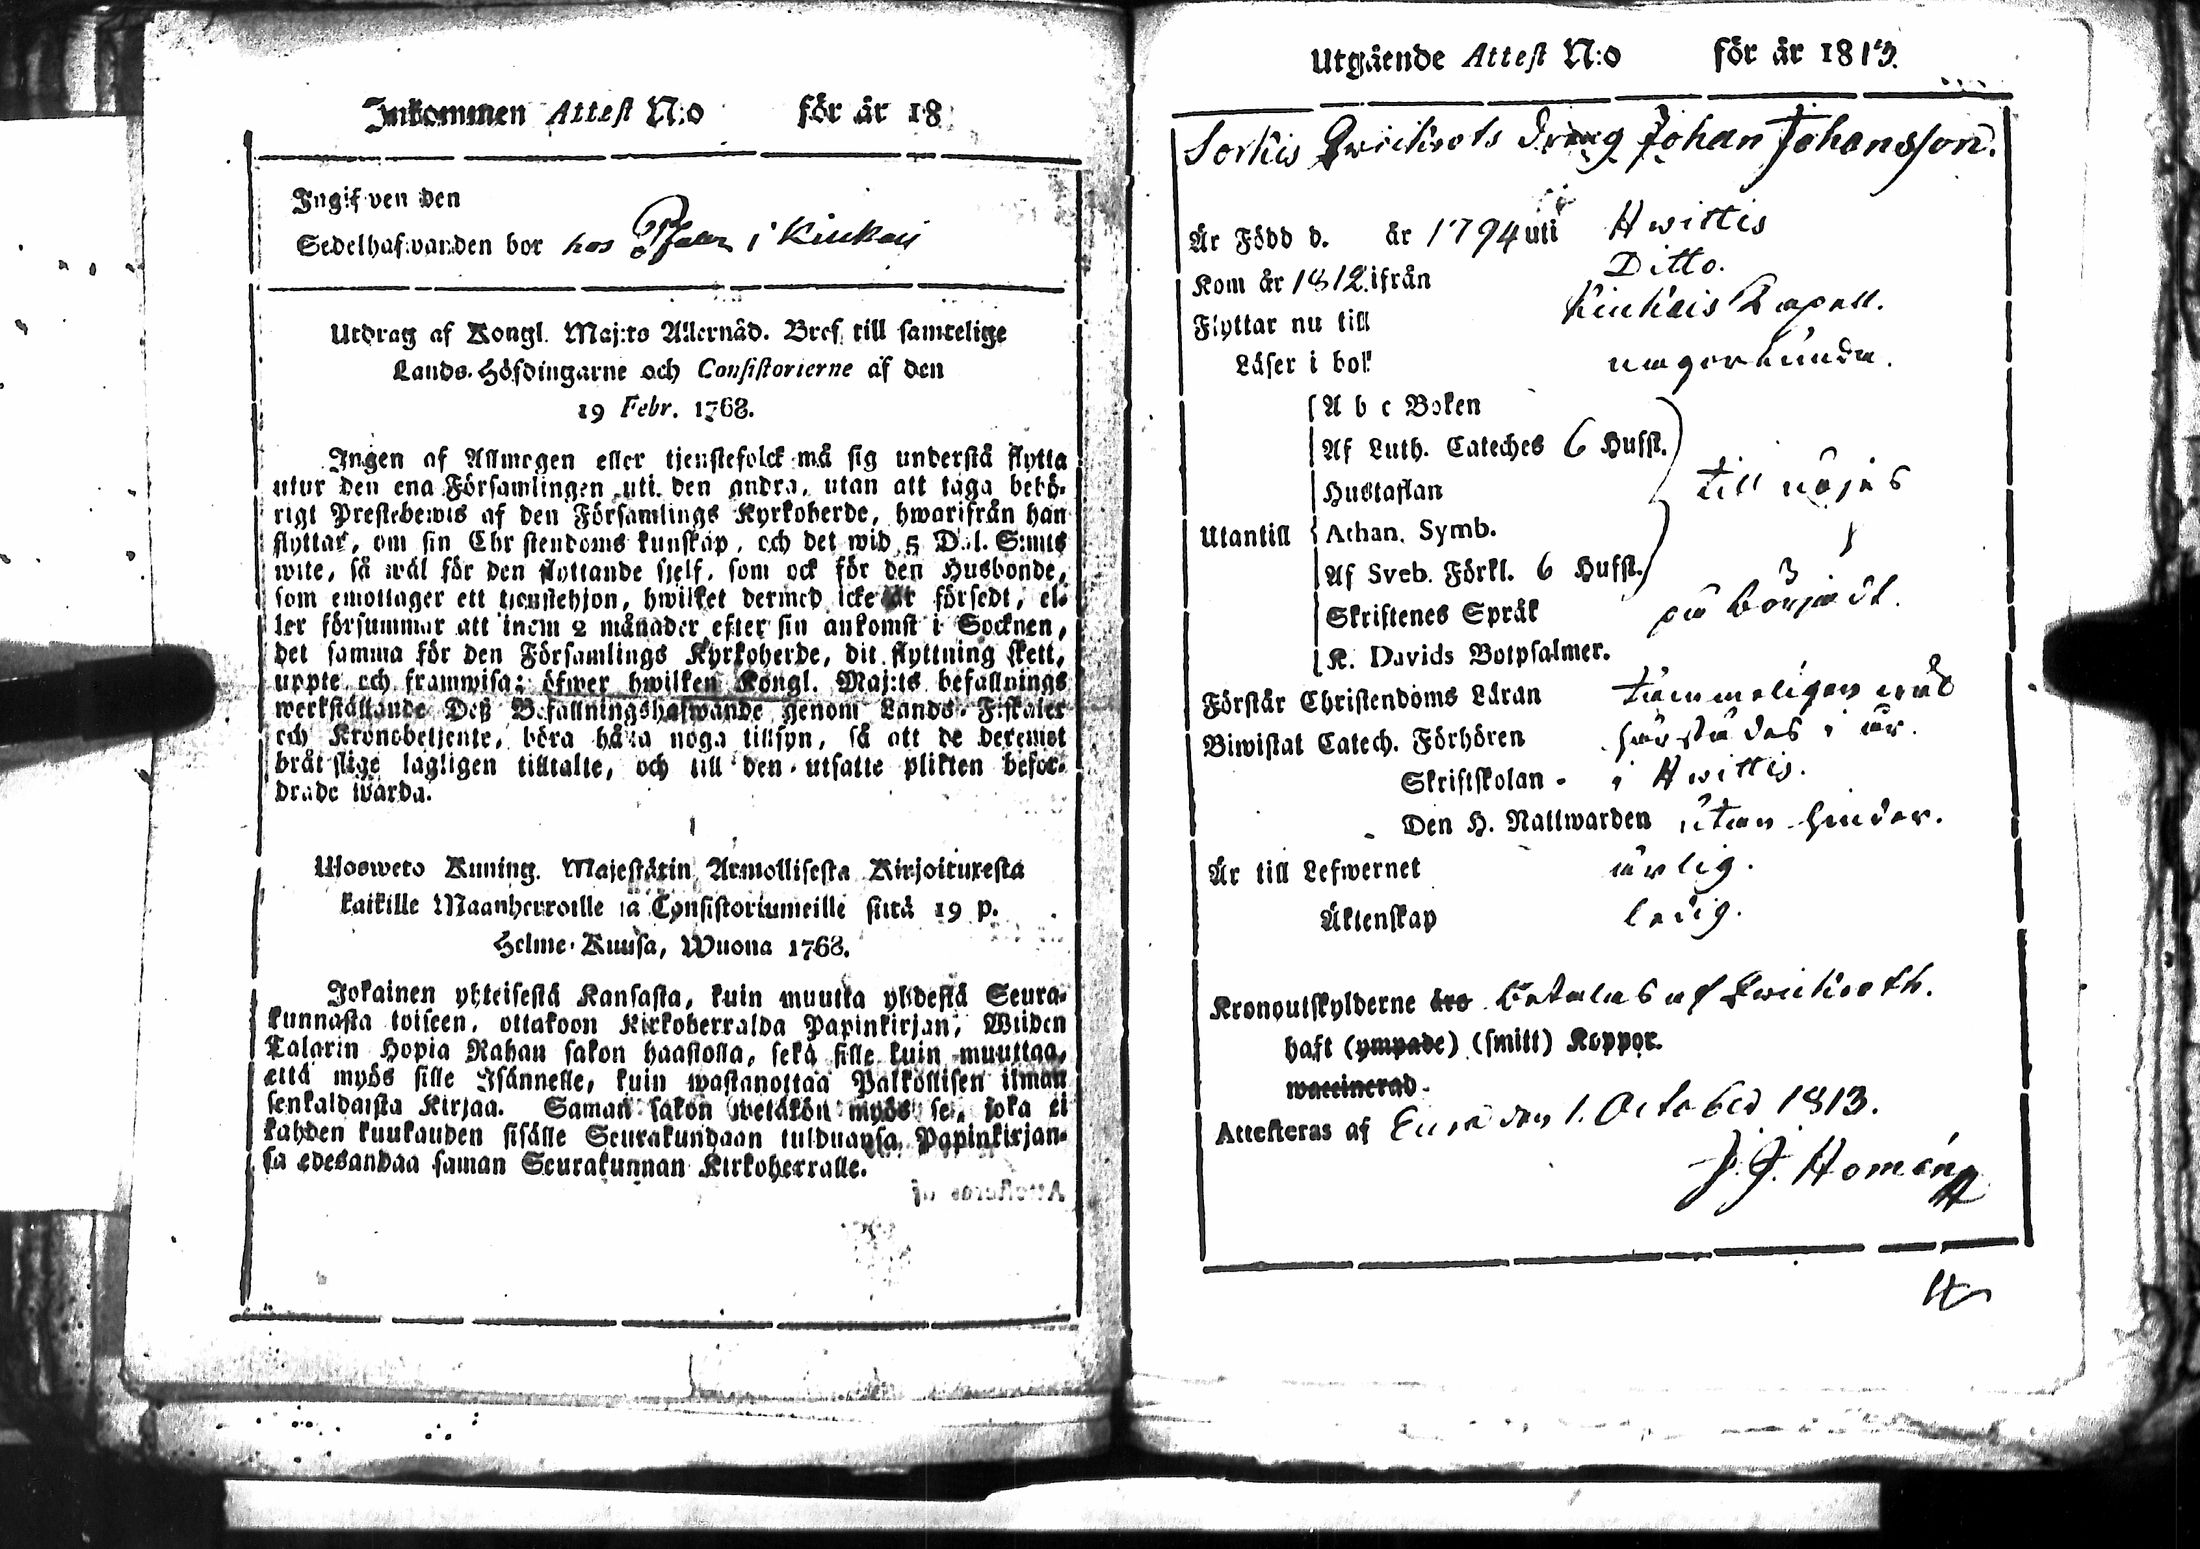 Inkommen Attest N:o för år 18
Ingifven den
Sedelhafwanden bor hos i Kiukais
Utdrag af Kongl. Maj:ts Allernåd. Bref till samtelige
Lands-Höfdingarne och Consistorierne af den
19 Febr. 1768.
Ingen af Allmogen eller tjenstefolck må sig understå flytta
utur den ena Församlingen uti den andra, utan att taga behö-
rigt Prestebewis af den Församlings Kyrkoherde, hwarifrån han
flyttar, om sin Christendoms kunskap, och det wid 5 Dal. S:mts
wite, så wäl för den flyttande sjelf, som ock för den Husbonde,
som emottager ett tjenstehjon, hwilket dermed icke är försedt, el-
ler försummar att inom 2 månader efter sin ankomst i Socknen,
det samma för den Församlings Kyrkoherde, dit flyttning skett,
uppte och framwisa; öfwer hwilken Kongl. Maj:ts befallnings
werkställande Deß Befallningshafwande genom Lands-Fiskaler
och Kronobetjente, böra hafwa noga tillsyn, så att de deremot
brätslige lagligen tilltalte, och till den utsatte plikten befor-
drade warda.
Ulosweto Kuning. Majestätin Armollisesta Kirjoituxesta
kaikille Maanherroille ja Consistoriumeille siitä 19 p.
Helme-Kuusa, Wuona 1768.
Jokainen yhteisestä Kansasta, kuin muutta yhdestä Seura-
kunnasta toiseen, ottakoon Kirkoherralda Papinkirjan, Wiiden
Talarin Hopia Rahan sakon haastolla, sekä sille kuin muuttaa,
että myös sille Isännelle, kuin wastanottaa Palkollisen ilman
senkaldaista Kirjaa. Saman sakon wetäkön myös se, joka ei
kahden kuukauden sisälle Seurakundaan tulduansa Papinkirjan-
sa edesandaa saman Seurakunnan Kirkoherralle.
Utgående Attest N:o för år 1813.
Sorkis Qwickrots dräng Johan Johansson.
Är Född d. år 1794 uti Hwittis
Kom år 1812 ifrån Ditto.
Flyttar nu till Kiukais Capell.
Läser i bok någorlunda.
A b c Boken
Af Luth. Cateches 6 Hufst.
Hustaflan till nöjes
Utantill Athan. Symb.
Af Sveb. Förkl. 6 Hufst.
Skriftenes Språk på börjadt.
K. Davids Botpsalmer.
Förstår Christendoms Läran tämmeligen wäl
Biwistat Catech. Förhören härstädes i år.
Skriftskolan - i Hwittis.
Den H. Nattwarden utan hinder.
Är till Lefwernet ärlig.
Äktenskap ledig.
Kronoutskylderne äro betalas af Qwickroth.
haft (ympade) (smitt) Koppor.
waccinerad.
Attesteras af Eura den 1. October 1813.
J. J. Homén